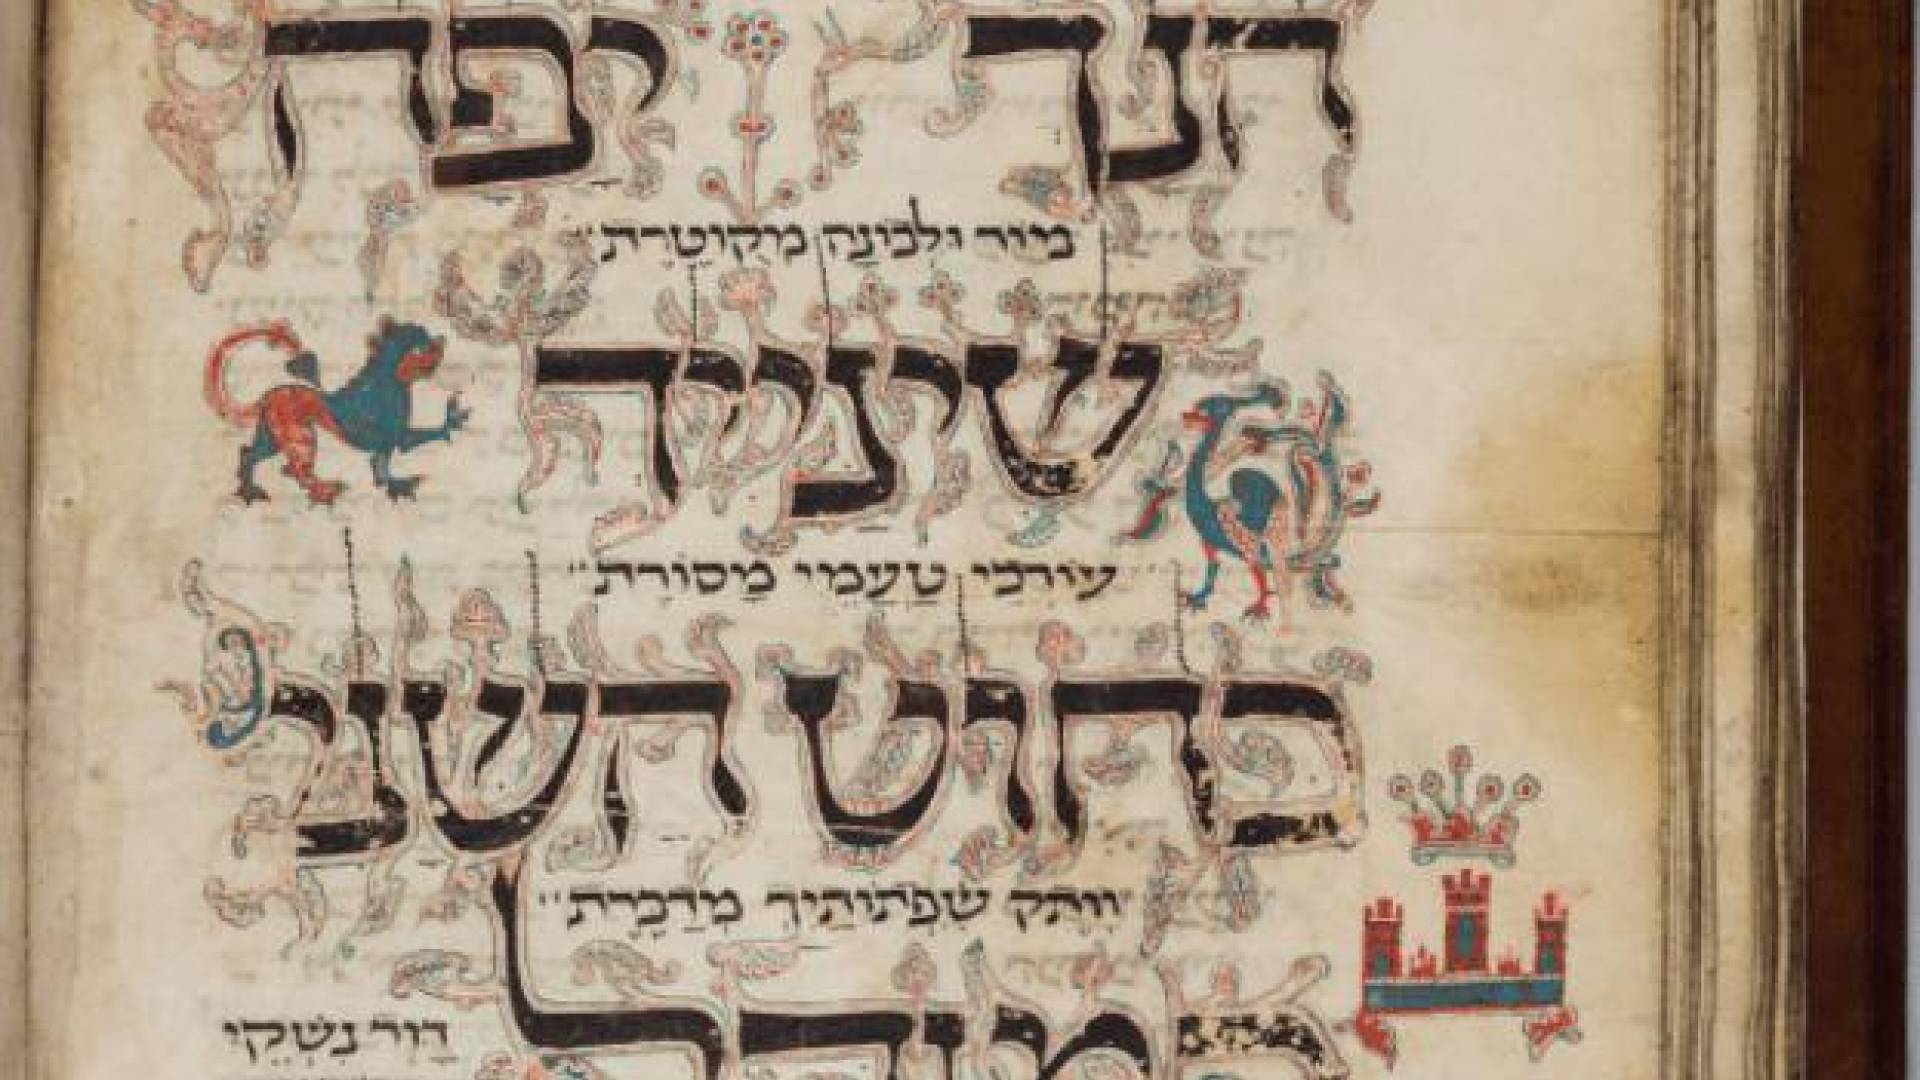 הנך יפה
מור ולבונה מקוטרת
שיניך
עורכי טעמי מסורת
כחוט השני
וותק שפתותיך מדברית
כמגדל
דוד נשקי